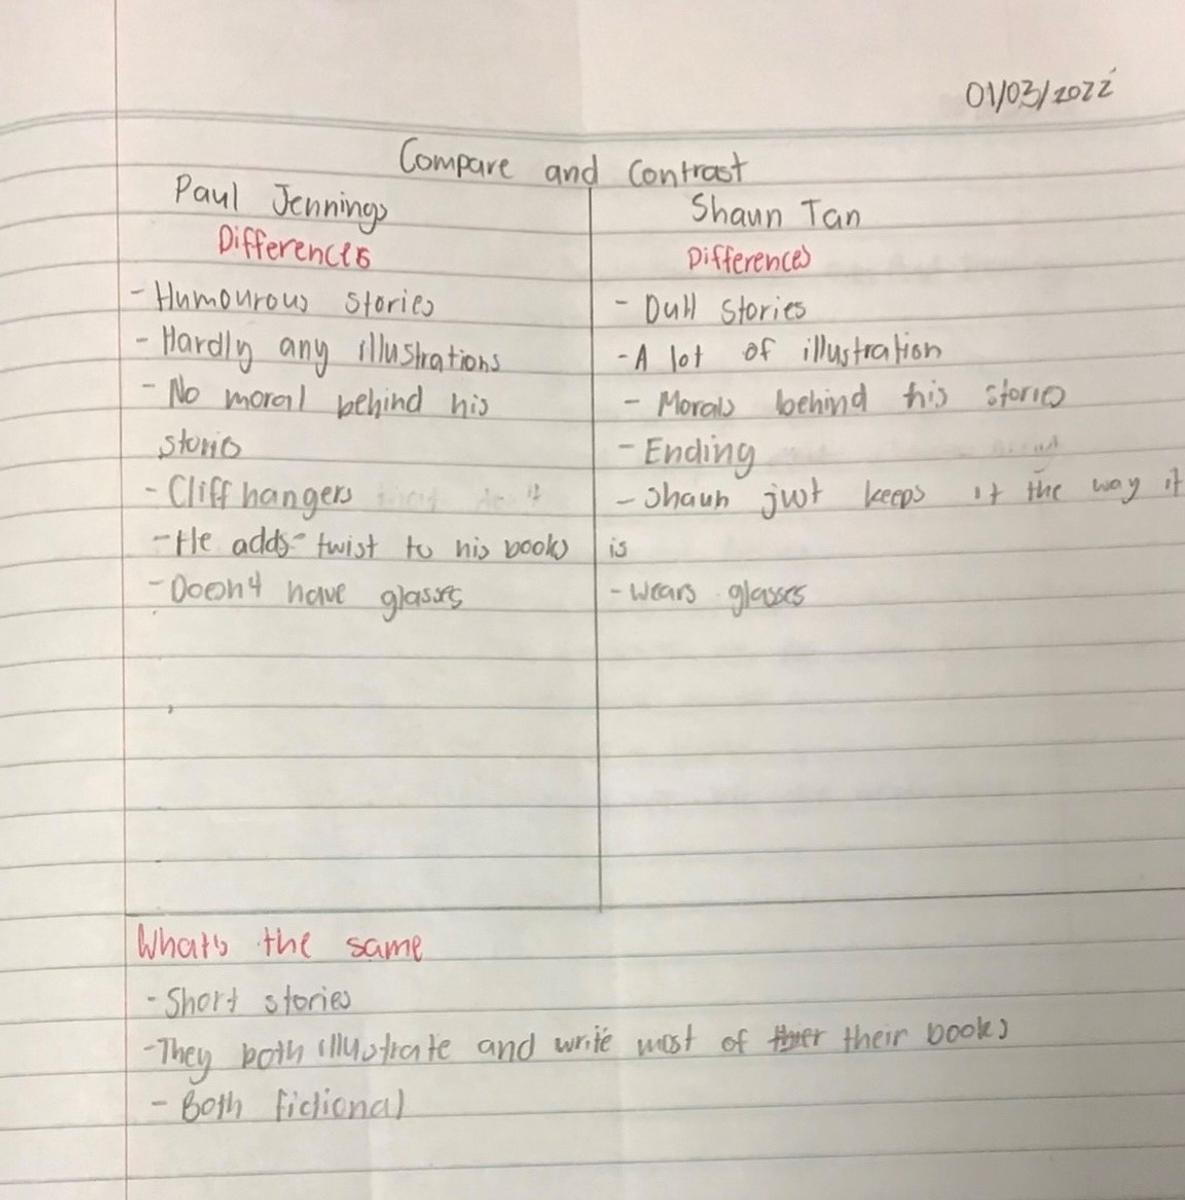 01/03/2022
Compare and Contrast
Paul Jennings
Differences
- Humourous stories
- Hardly any illustrations
- No moral behind his
stories
- Cliff hangers
- He adds twist to his books
- Doesn't have glasses
Shaun Tan
Differences
- Dull stories
- A lot of illustration
- Morals behind his stories
- Ending
- Shaun just keeps it the way it
is
- Wears glasses
What's the same
- Short stories
- They both illustrate and write most of their books
- Both fictional